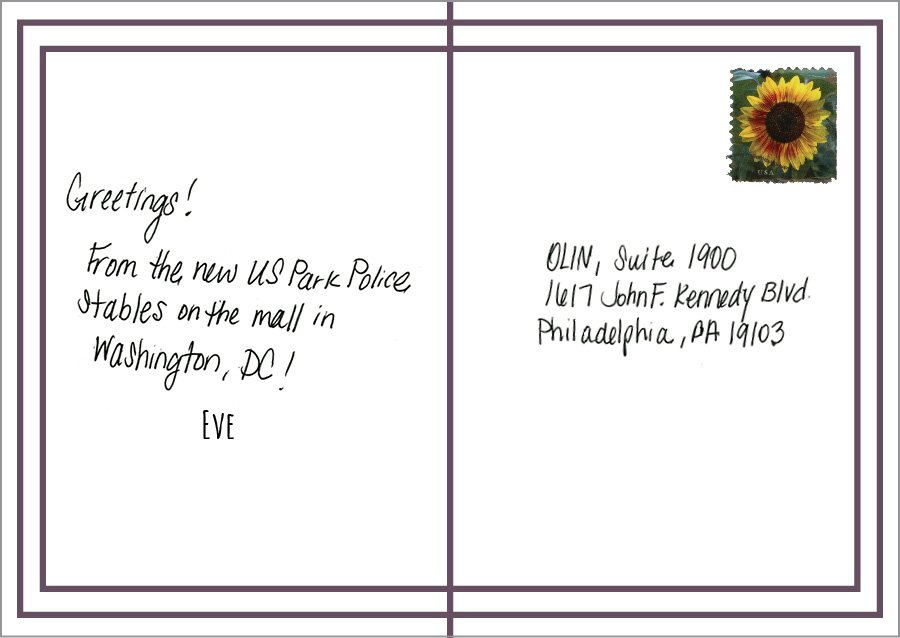 Greetings!
From the new US Park Police
stables on the mall in
Washington, DC!
EVE
USA
OLIN, Suite 1900
1617 John F. Kennedy Blvd.
Philadelphia, PA 19103